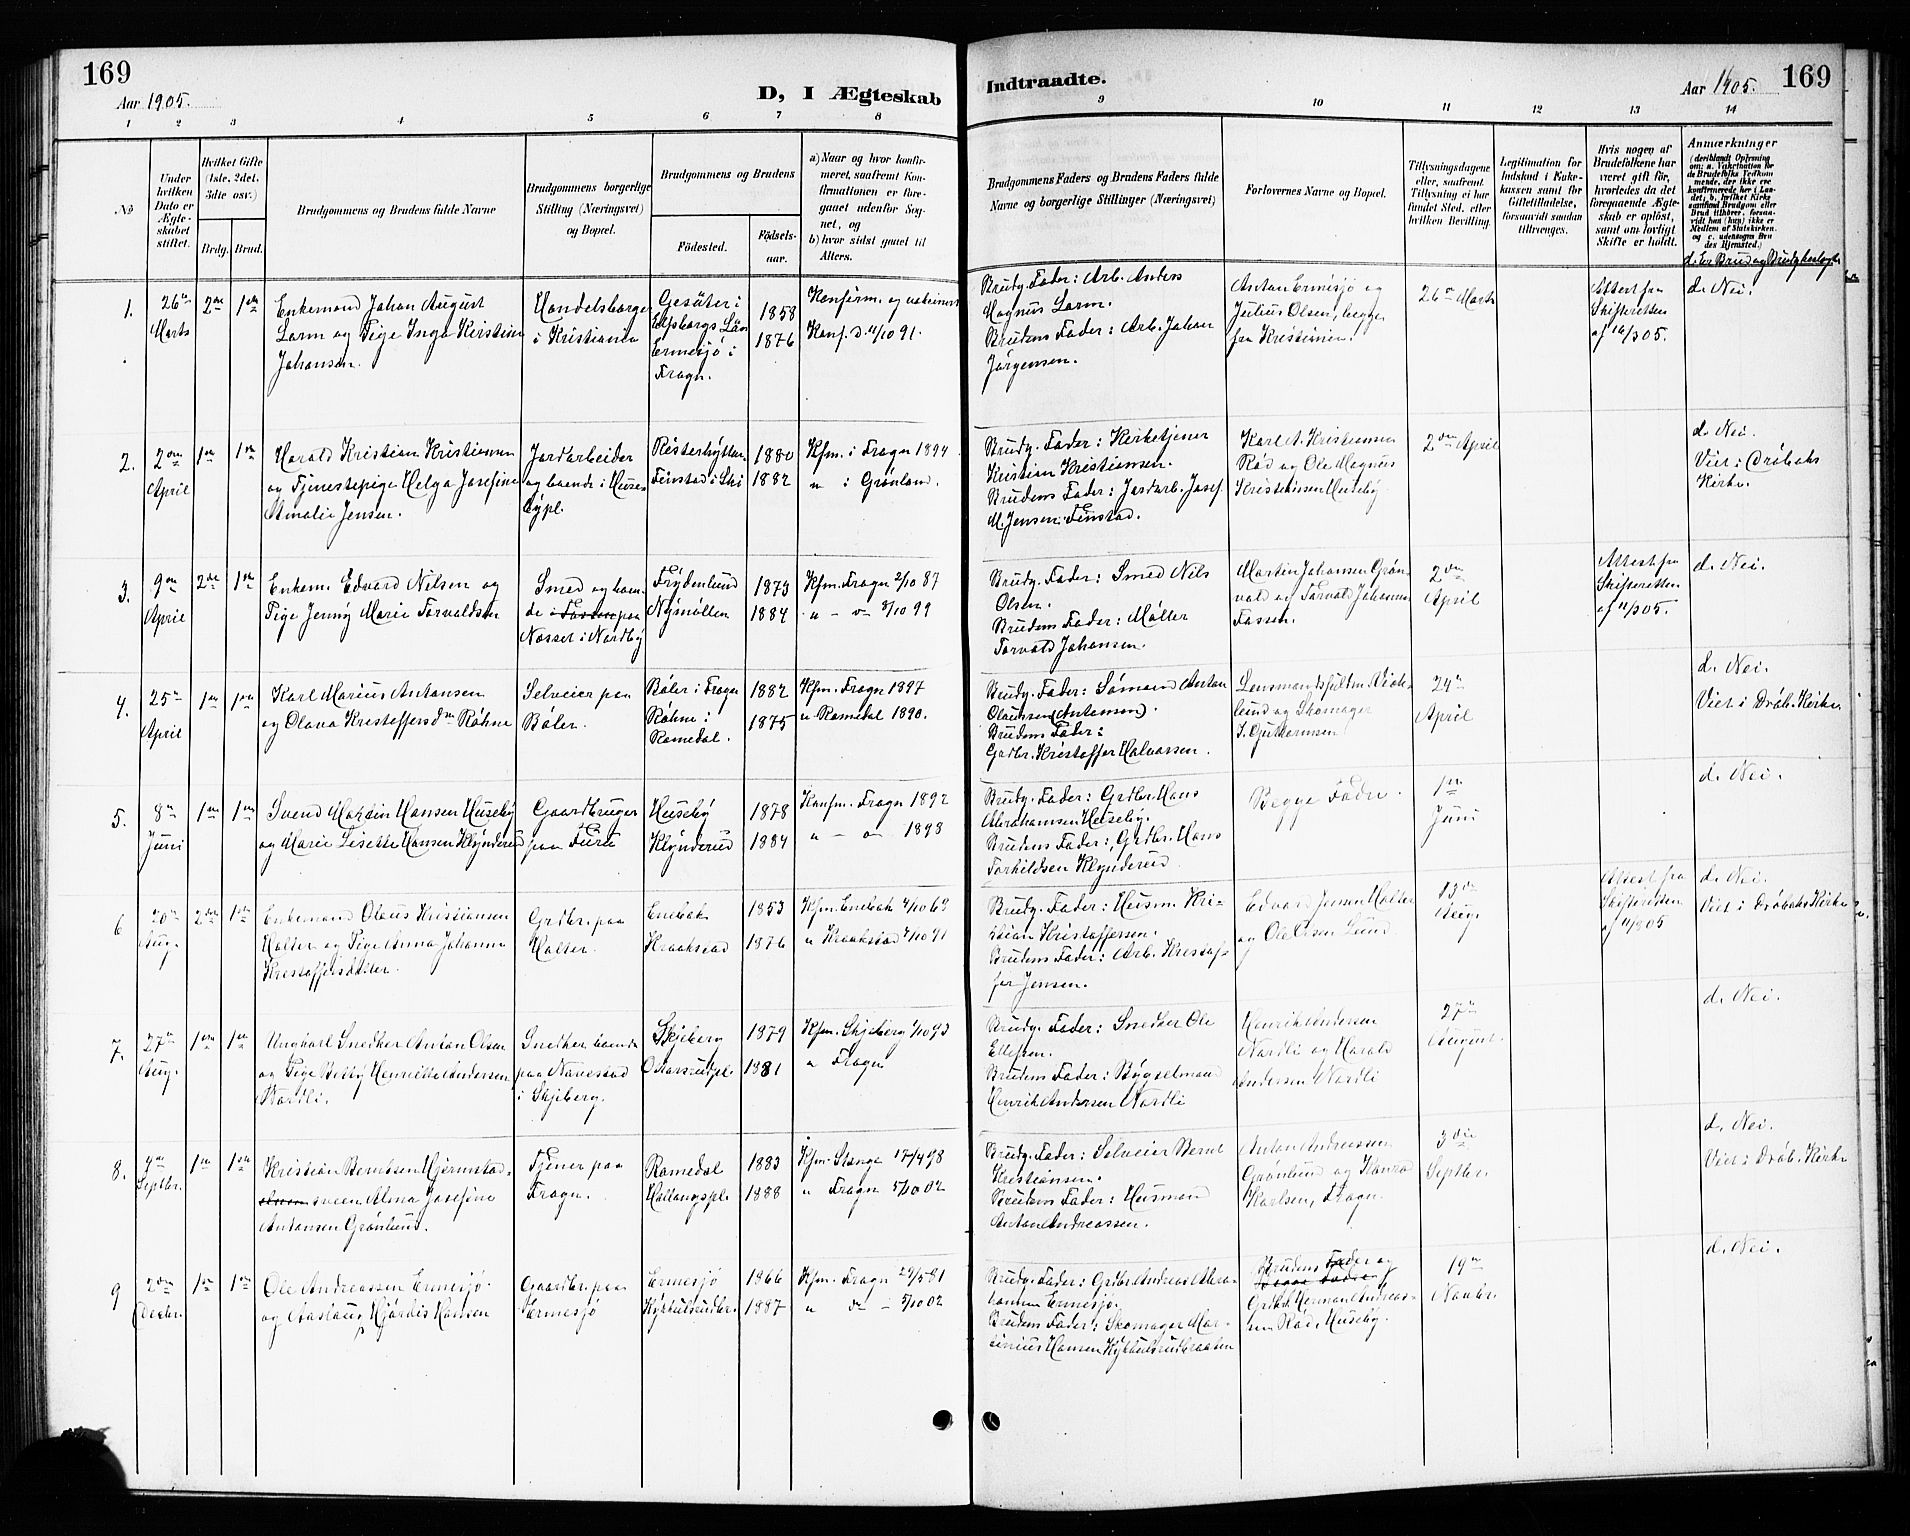 169
Aar 1905.
D, I Ægteskab
Indtraadte.
Aar 1905.
169
1 2 3 4 5 6 7 8
9 10 11 12 13 14
No
Under hvilken Dato er Ægteskabet stiftet.
Hvilket Gifte (1ste, 2det, 3dte osv.)
Brdg. Brud.
Brudgommens og Brudens fulde Navne
Brudgommens borgerlige Stilling (Næringsvei) og Bopæl.
Brudgommens og Brudens
Födested.
Födselsaar.
a) Naar og hvor konfirmeret, saafremt Konfirmationen er foregaaet udenfor Sognet, og
b) hvor sidst gaaet til Alters.
Brudgommens Faders og Brudens Faders fulde Navne og borgerlige Stillinger (Næringsvei)
Forlovernes Navne og Bopæl.
Tillysningsdagene eller, saafremt Tillysning ei har fundet Sted, efter hvilken Bevilling.
Legitimation for Indskud i Enkekassen samt for Giftetilladelse, forsaavidt saadan tiltrænges.
Hvis nogen af Brudefolkene har været gift før, hvorledes da det foregaaende Ægteskab er opløst, samt om lovligt Skifte er holdt.
Anmærkninger
d. Er Brud og Brudg. beslægt.
1.
26de Marts
2den 1ste
Enkemand Johan August
Larm og Pige Inga Kerstine
Johansen.
Handelsborger
i Kristiania
Gesäter i
Elfsborgs Län
Ermesjö i
Frogn.
1858
1876
Konfirm. og
Konf. d. 4/10 91.
Brudg. Fader: Arb. Anders
Magnus Larm.
Brudens Fader: Arb. Johan
Jörgensen.
Anton Ermesjö og
Julius Olsen, begge
fra Kristiania.
26de Marts
Attest fra
Skifteretten
af 16/3 05.
d. Nei.
2.
2den April
1ste 1ste
Harald Kristian Kristiansen
og Tjenestepige Helga Josefine
Amalie Jensen.
Jordarbeider
og boende i Huse-
bypl.
Finstad i Ski
1880
1882
Kfm. i Frogn 1894
" i Grønland.
Brudg. Fader: Kirketjener
Kristian Kristiansen.
Brudens Fader: Jordarb. Josef
M. Jensen, Finstad.
Karl A. Kristiansen
Rød og Ole Magnus
Kristiansen Huseby
2den April
d. Nei.
Viet i Drøbaks
Kirke.
3.
9de April
2den 1ste
Enkem. Edvard Nilsen og
Pige Jenny Marie Torvaldsen
Smed og boen-
de i paa
Nosset i Nordby
Frydenlund
Nymøllen
1873
1884
Kfm. Frogn 2/10 87
" - " 8/10 99
Brudg. Fader: Smed Nils
Olsen.
Brudens Fader: Møller
Torvald Johansen.
Martin Johansen Grøn-
vold og Torvald Johansen
Fossen.
2den April
Attest fra
Skifteretten
af 11/3 05.
d. Nei.
4.
25de April
1ste 1ste
Karl Marius Antonsen
og Olava Kristoffersdtr Røhne
Selveier paa
Bøler.
Bøler i Frogn
Røhne i
Romedal.
1882
1875
Kfm. Frogn 1897
" Romedal 1890.
Brudg. Fader: Sømand Anton
Olaussen (Antonsen).
Brudens Fader:
Grdbr. Kristoffer Halvorsen.
Lensmandsfuldm.
lund og Skomager
J. Guttormsen
24de April
d. Nei.
Viet i Drøb. Kirke
5.
8de Juni
1ste 1ste
Svend Martin Hansen Huseby
og Marie Lisette Hansen Klynderud
Gaardbruger
paa Furu
Huseby
Klynderud
1878
1884
Konfm. Frogn 1892
" - " 1898
Brudg. Fader: Grdbr. Hans
Abrahamsen Huseby.
Brudens Fader: Grdbr. Hans
Torkildsen Klynderud.
Begge Fædre.
1ste Juni
d. Nei.
6
20de Aug.
2den 1ste
Enkemand Olaus Kristiansen
Holter og Pige Anna Johanne
Kristoffersdatter.
Grdbr. paa
Holter.
Enebak
Kraakstad
1853
1876
Kfm. Enebak 4/10 69
" Kraakstad 4/10 91
Brudg. Fader: Husm. Kri-
stian Kristoffersen.
Brudens Fader: Arb. Kristof-
fer Jensen.
Edvard Jensen Holter
og Ole Olsen Lund
13de Aug.
Attest fra
Skifteretten
af 11/8 05
d. Nei.
Viet i Drøbaks Kirke
7.
27de Aug.
1ste 1ste
Ungkarl Snedker Anton Olsen
og Pige Betty Henriette Andersen
Nordli.
Snedker, boende
paa Navestad
i Skjeberg.
Skjeberg
1879
1881
Kfm. Skjeberg 1/10 93
" Frogn
Brudg. Fader: Snedker Ole
Ellefsen.
Brudens Fader: Bygselmand
Henrik Andersen Nordli
Henrik Andersen
Nordli og Harald
Andersen Nordli
27de August.
d. Nei.
8.
Septbr.
1ste 1ste
Kristian Berntsen Hjermstad-
sveen Alma Josefine
Antonsen Grønlund.
Tjener paa
Frogn.
Romedal
Hallangspl.
1883
1888
Kfm. Stange 17/4 98
" Frogn 5/10 02
Brudg. Fader: Selveier Bernt
Kristiansen.
Brudens Fader: Husmand
Anton Andreassen.
Anton Andreassen
Grønlund og Konrad
Karlsen, Frogn.
3die Septbr.
d. Nei.
Viet i Drøb. Kirke
9
2den Decbr.
1ste 1ste
Ole Andreassen Ermesjö
og Aaslaug Hjørdis Hansen
Gaardbr. paa
Ermesjö
Ermesjö
1866
1887
Kfm. Frogn 29/5 81
" do - 5/10 02
Brudg. Fader: Grdbr. Andreas Abra-
hamsen Ermesjö.
Brudens Fader: Skomager Mar-
tinius Hansen
Brudens Fader og
Grdbr. Herman Andreas-
sen Rød, Huseby.
19de Novbr.
d. Nei.